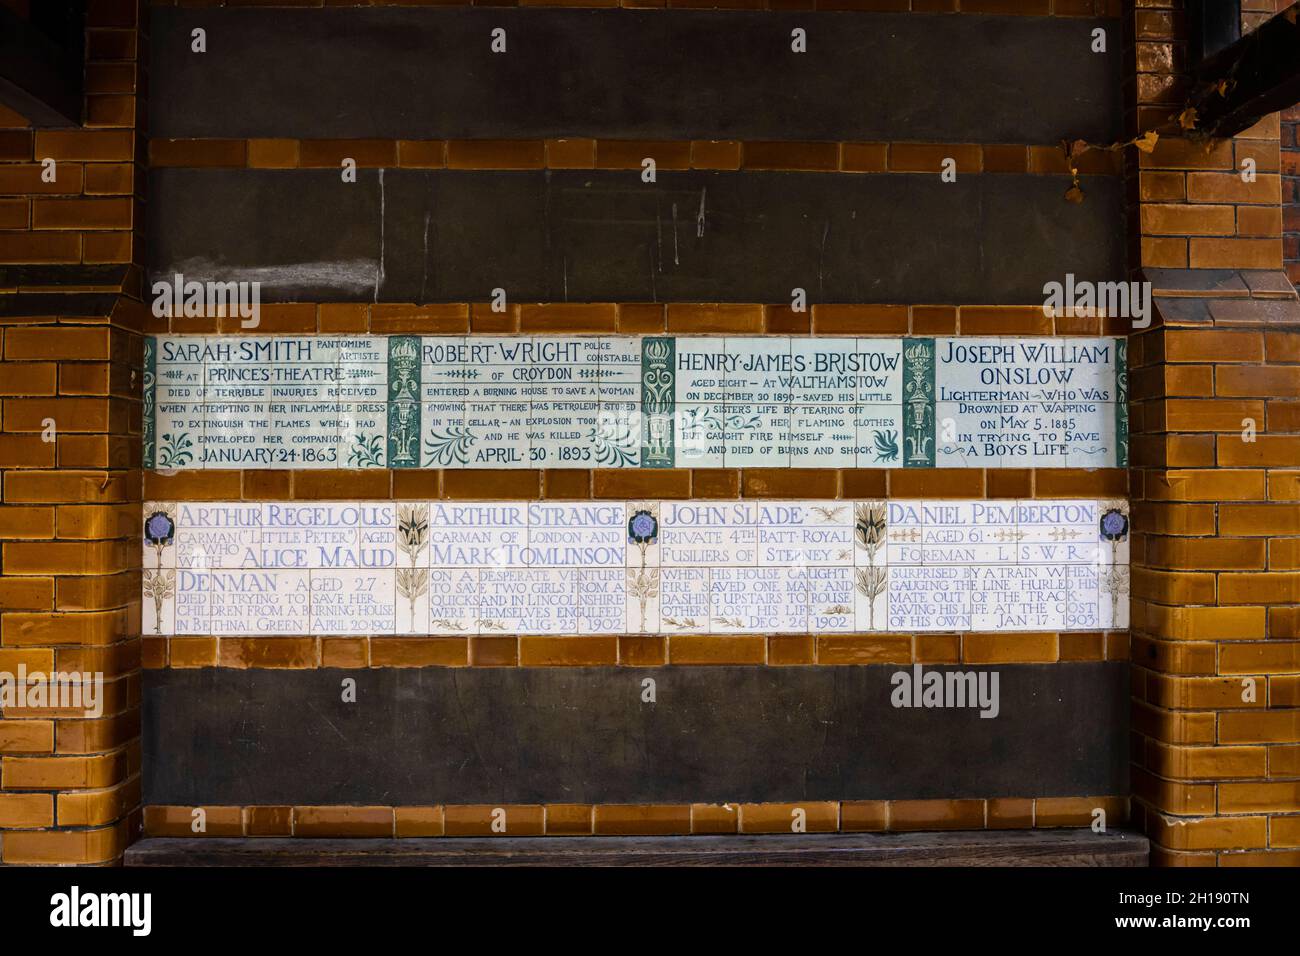 SARAH · SMITH PANTOMIME
ARTISTE
AT PRINCE'S · THEATRE
DIED OF TERRIBLE INJURIES RECEIVED
WHEN ATTEMPTING IN HER INFLAMMABLE DRESS
TO EXTINGUISH THE FLAMES WHICH HAD
ENVELOPED HER COMPANION
JANUARY · 24 · 1863
ROBERT · WRIGHT POLICE
CONSTABLE
OF CROYDON
ENTERED A BURNING HOUSE TO SAVE A WOMAN
KNOWING THAT THERE WAS PETROLEUM STORED
IN THE CELLAR – AN EXPLOSION TOOK PLACE
AND HE WAS KILLED
APRIL · 30 · 1893
HENRY · JAMES · BRISTOW
AGED EIGHT – AT WALTHAMSTOW
ON DECEMBER 30 1890 – SAVED HIS LITTLE
SISTER'S LIFE BY TEARING OFF
HER FLAMING CLOTHES
BUT CAUGHT FIRE HIMSELF
AND DIED OF BURNS AND SHOCK
JOSEPH WILLIAM
ONSLOW
LIGHTERMAN – WHO WAS
DROWNED AT WAPPING
ON MAY 5. 1885
IN TRYING TO SAVE
A BOYS LIFE
ARTHUR REGELOUS
CARMAN ("LITTLE PETER") AGED
25 WHO
WITH ALICE MAUD
DENMAN · AGED 27
DIED IN TRYING TO SAVE HER
CHILDREN FROM A BURNING HOUSE
IN BETHNAL GREEN · APRIL 20 · 1902
ARTHUR STRANGE
CARMAN OF LONDON · AND
MARK TOMLINSON
ON A DESPERATE VENTURE
TO SAVE TWO GIRLS FROM A
QUICKSAND IN LINCOLNSHIRE
WERE THEMSELVES ENGULFED
AUG · 25 · 1902
JOHN SLADE
PRIVATE 4TH BATT · ROYAL
FUSILIERS OF STEPNEY
WHEN HIS HOUSE CAUGHT
FIRE SAVED ONE MAN AND
DASHING UPSTAIRS TO ROUSE
OTHERS LOST HIS LIFE
DEC · 26 · 1902
DANIEL PEMBERTON
AGED 61
FOREMAN L · S · W · R
SURPRISED BY A TRAIN WHEN
GAUGING THE LINE HURLED HIS
MATE OUT OF THE TRACK
SAVING HIS LIFE AT THE COST
OF HIS OWN JAN · 17 · 1903
alamy
Image ID: 2H191TN
www.alamy.com